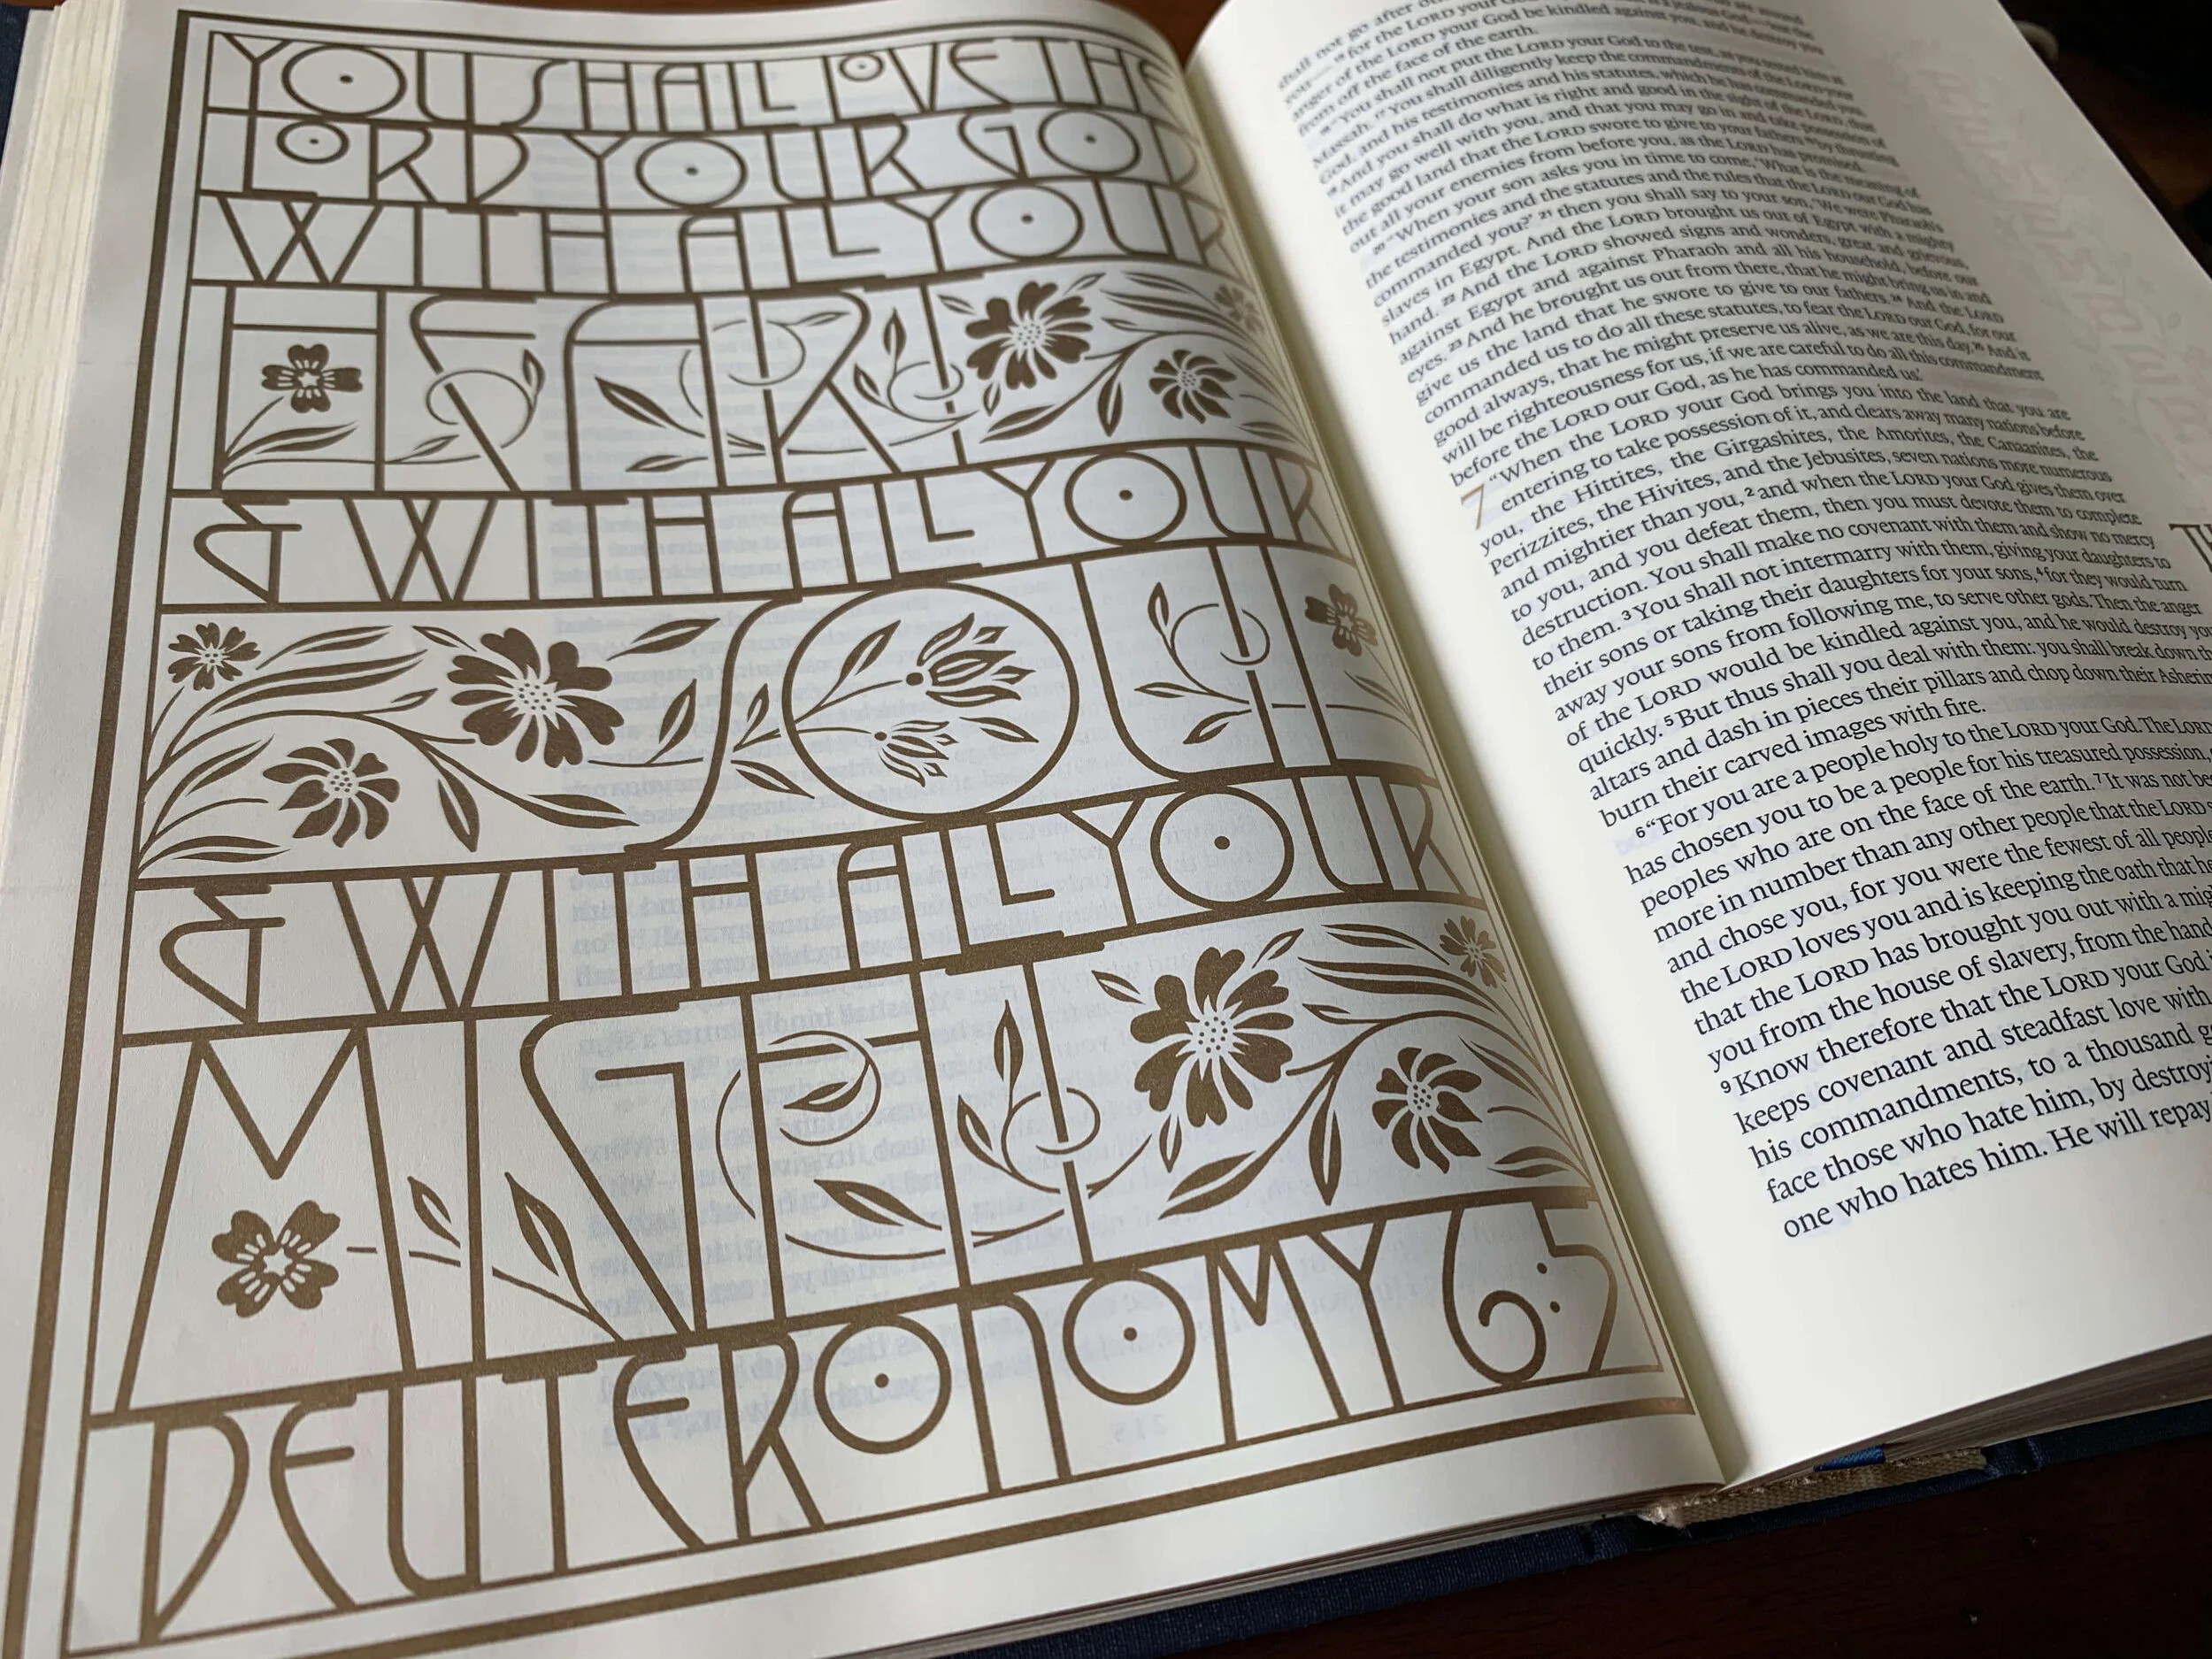 YOU SHALL LOVE THE
LORD YOUR GOD
WITH ALL YOUR
HEART
& WITH ALL YOUR
SOUL
& WITH ALL YOUR
MIGHT
DEUTERONOMY 6:5
shall not go after
your— ¹⁵ for the LORD your God
anger of the LORD your God be kindled against you, and he destroy you
from off the face of the earth.
¹⁶ "You shall not put the LORD your God to the test, as you tested him at
Massah. ¹⁷ You shall diligently keep the commandments of the LORD your
God, and his testimonies and his statutes, which he has commanded you.
¹⁸ And you shall do what is right and good in the sight of the LORD, that
it may go well with you, and that you may go in and take possession of
the good land that the LORD swore to give to your fathers ¹⁹ by thrusting
out all your enemies from before you, as the LORD has promised.
²⁰ "When your son asks you in time to come, 'What is the meaning of
the testimonies and the statutes and the rules that the LORD our God has
commanded you?' ²¹ then you shall say to your son, 'We were Pharaoh's
slaves in Egypt. And the LORD brought us out of Egypt with a mighty
hand. ²² And the LORD showed signs and wonders, great and grievous,
against Egypt and against Pharaoh and all his household, before our
eyes. ²³ And he brought us out from there, that he might bring us in and
give us the land that he swore to give to our fathers. ²⁴ And the LORD
commanded us to do all these statutes, to fear the LORD our God, for our
good always, that he might preserve us alive, as we are this day. ²⁵ And it
will be righteousness for us, if we are careful to do all this commandment
before the LORD our God, as he has commanded us.'
7 "When the LORD your God brings you into the land that you are
entering to take possession of it, and clears away many nations before
you, the Hittites, the Girgashites, the Amorites, the Canaanites, the
Perizzites, the Hivites, and the Jebusites, seven nations more numerous
and mightier than you, ² and when the LORD your God gives them over
to you, and you defeat them, then you must devote them to complete
destruction. You shall make no covenant with them and show no mercy
to them. ³ You shall not intermarry with them, giving your daughters to
their sons or taking their daughters for your sons, ⁴ for they would turn
away your sons from following me, to serve other gods. Then the anger
of the LORD would be kindled against you, and he would destroy you
quickly. ⁵ But thus shall you deal with them: you shall break down
altars and dash in pieces their pillars and chop down their Asherim
burn their carved images with fire.
⁶ "For you are a people holy to the LORD your God. The LORD
has chosen you to be a people for his treasured possession,
peoples who are on the face of the earth. ⁷ It was not
more in number than any other people that the LORD
and chose you, for you were the fewest of all
the LORD loves you and is keeping the oath that
that the LORD has brought you out with a
you from the house of slavery, from the hand
⁹ Know therefore that the LORD your God
keeps covenant and steadfast love with
his commandments, to a thousand
face those who hate him, by
one who hates him. He will repay